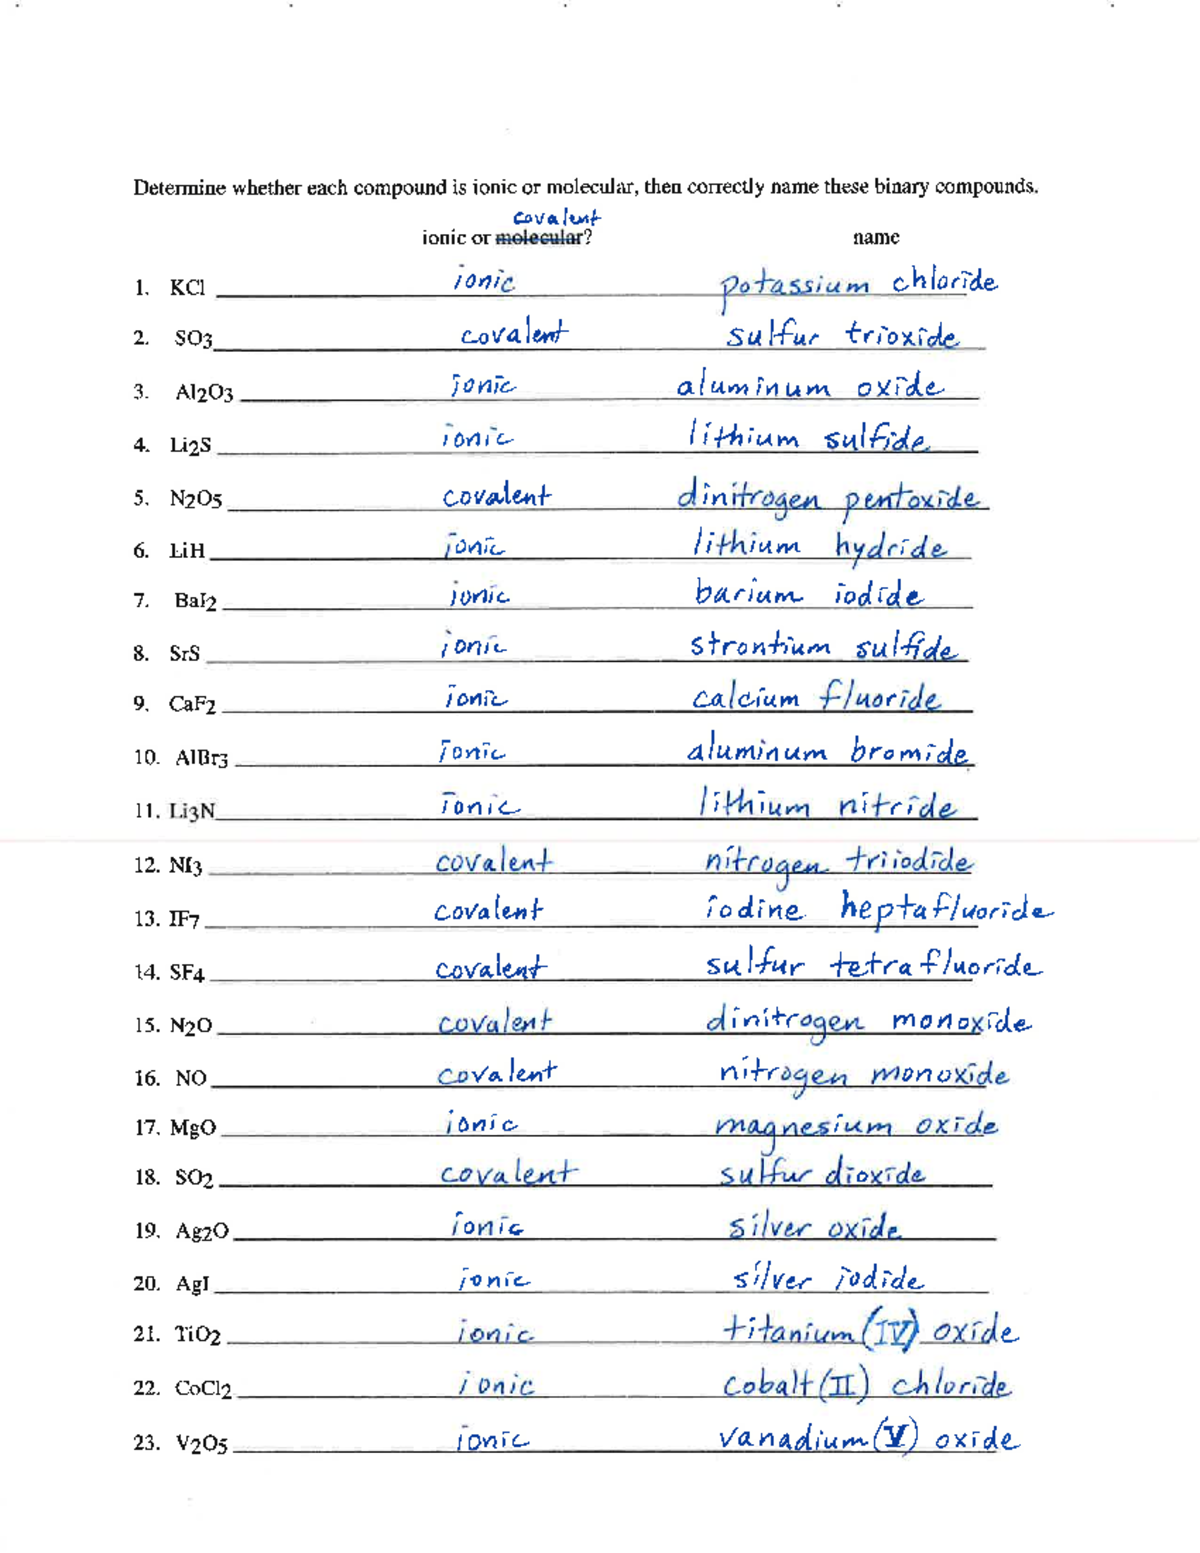 Determine whether each compound is ionic or molecular, then correctly name these binary compounds.
covalent
ionic or molecular? name
1. KCl ionic potassium chloride
2. SO3 covalent sulfur trioxide
3. Al2O3 ionic aluminum oxide
4. Li2S ionic lithium sulfide
5. N2O5 covalent dinitrogen pentoxide
6. LiH ionic lithium hydride
7. BaI2 ionic barium iodide
8. SrS ionic strontium sulfide
9. CaF2 ionic calcium fluoride
10. AlBr3 ionic aluminum bromide
11. Li3N ionic lithium nitride
12. NI3 covalent nitrogen triiodide
13. IF7 covalent iodine heptafluoride
14. SF4 covalent sulfur tetrafluoride
15. N2O covalent dinitrogen monoxide
16. NO covalent nitrogen monoxide
17. MgO ionic magnesium oxide
18. SO2 covalent sulfur dioxide
19. Ag2O ionic silver oxide
20. AgI ionic silver iodide
21. TiO2 ionic titanium (IV) oxide
22. CoCl2 ionic cobalt (II) chloride
23. V2O5 ionic vanadium (V) oxide